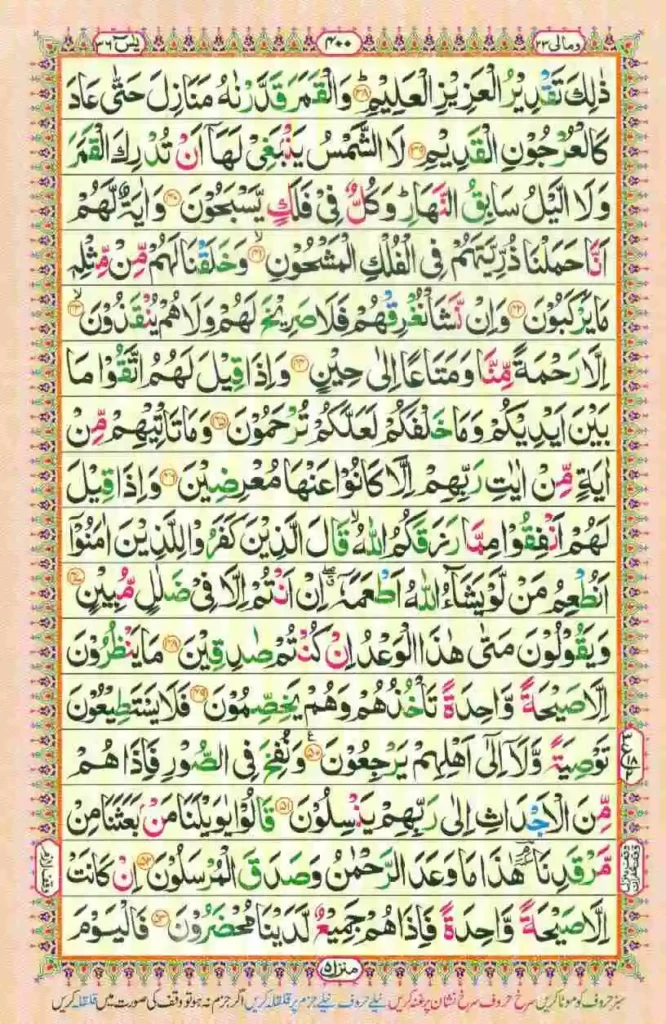 وَمَالِيَ ٢٣ ٤٠٠ يٰسٓ ٣٦
ذٰلِكَ تَقْدِيْرُ الْعَزِيْزِ الْعَلِيْمِؕ ﴿۳۸﴾ وَالْقَمَرَ قَدَّرْنٰهُ مَنَازِلَ حَتّٰى عَادَ
كَالْعُرْجُوْنِ الْقَدِيْمِ ﴿۳۹﴾ لَا الشَّمْسُ يَنْۢبَغِيْ لَهَاۤ اَنْ تُدْرِكَ الْقَمَرَ
وَلَا الَّيْلُ سَابِقُ النَّهَارِؕ وَكُلٌّ فِيْ فَلَكٍ يَّسْبَحُوْنَ ﴿۴۰﴾ وَاٰيَةٌ لَّهُمْ
اَنَّا حَمَلْنَا ذُرِّيَّتَهُمْ فِي الْفُلْكِ الْمَشْحُوْنِۙ ﴿۴۱﴾ وَخَلَقْنَا لَهُمْ مِّنْ مِّثْلِهٖ
مَا يَرْكَبُوْنَ ﴿۴۲﴾ وَاِنْ نَّشَاْ نُغْرِقْهُمْ فَلَا صَرِيْخَ لَهُمْ وَلَا هُمْ يُنْقَذُوْنَۙ ﴿۴۳﴾
اِلَّا رَحْمَةً مِّنَّا وَمَتَاعًا اِلٰى حِيْنٍ ﴿۴۴﴾ وَاِذَا قِيْلَ لَهُمُ اتَّقُوْا مَا
بَيْنَ اَيْدِيْكُمْ وَمَا خَلْفَكُمْ لَعَلَّكُمْ تُرْحَمُوْنَ ﴿۴۵﴾ وَمَا تَاْتِيْهِمْ مِّنْ
اٰيَةٍ مِّنْ اٰيٰتِ رَبِّهِمْ اِلَّا كَانُوْا عَنْهَا مُعْرِضِيْنَ ﴿۴۶﴾ وَاِذَا قِيْلَ
لَهُمْ اَنْفِقُوْا مِمَّا رَزَقَكُمُ اللّٰهُۙ قَالَ الَّذِيْنَ كَفَرُوْا لِلَّذِيْنَ اٰمَنُوْۤا
اَنُطْعِمُ مَنْ لَّوْ يَشَآءُ اللّٰهُ اَطْعَمَهٗۤ ۖ اِنْ اَنْتُمْ اِلَّا فِيْ ضَلٰلٍ مُّبِيْنٍ ﴿۴۷﴾
وَيَقُوْلُوْنَ مَتٰى هٰذَا الْوَعْدُ اِنْ كُنْتُمْ صٰدِقِيْنَ ﴿۴۸﴾ مَا يَنْظُرُوْنَ
اِلَّا صَيْحَةً وَّاحِدَةً تَاْخُذُهُمْ وَهُمْ يَخِصِّمُوْنَ ﴿۴۹﴾ فَلَا يَسْتَطِيْعُوْنَ
تَوْصِيَةً وَّلَاۤ اِلٰۤى اَهْلِهِمْ يَرْجِعُوْنَ ﴿۵۰﴾ وَنُفِخَ فِي الصُّوْرِ فَاِذَا هُمْ
مِّنَ الْاَجْدَاثِ اِلٰى رَبِّهِمْ يَنْسِلُوْنَ ﴿۵۱﴾ قَالُوْا يٰوَيْلَنَا مَنْۢ بَعَثَنَا مِنْ
مَّرْقَدِنَا هٰذَا مَا وَعَدَ الرَّحْمٰنُ وَصَدَقَ الْمُرْسَلُوْنَ ﴿۵۲﴾ اِنْ كَانَتْ
اِلَّا صَيْحَةً وَّاحِدَةً فَاِذَا هُمْ جَمِيْعٌ لَّدَيْنَا مُحْضَرُوْنَ ﴿۵۳﴾ فَالْيَوْمَ
منزل ٥
سبز حروف کو موٹا کریں سرخ حروف سرخ نشان پر غنہ کریں نیلے حروف نیلے جزم پر قلقلہ کریں اگر جزم نہ ہو تو وقف کی صورت میں قلقلہ کریں